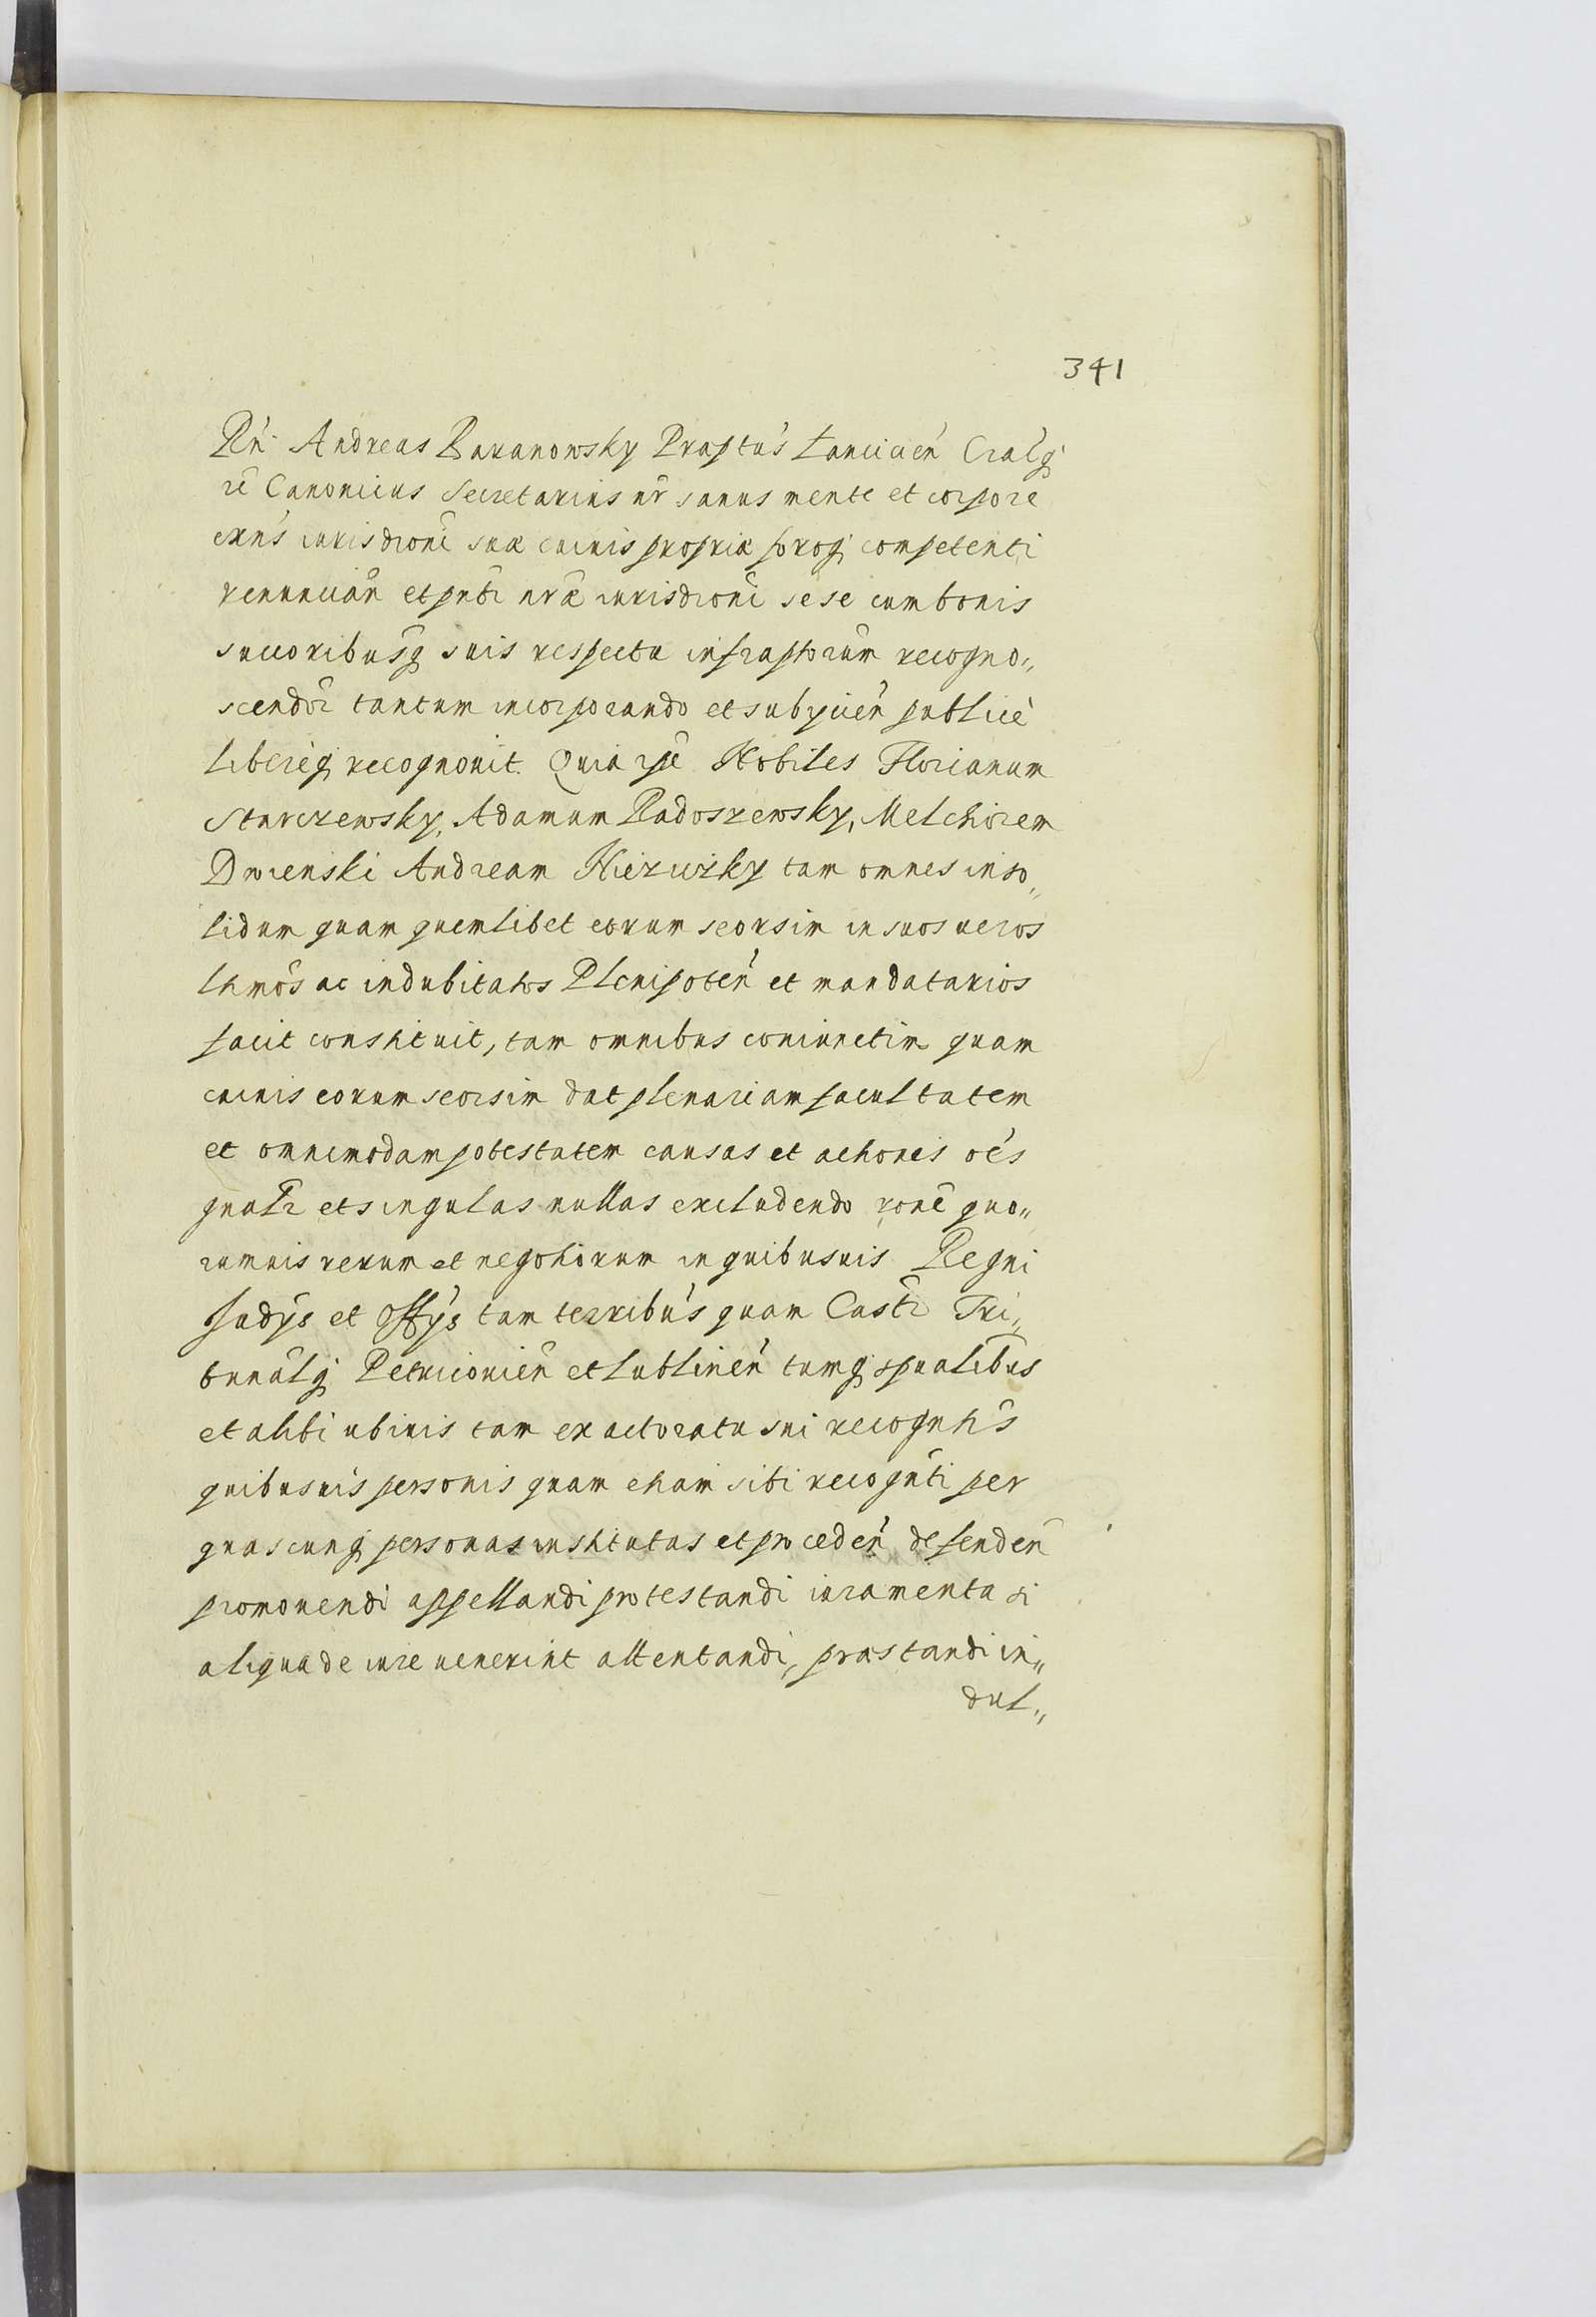 341
Rñ Andreas Baranowsky Præptûs Lanciciẽn Cralq̃
rẽ Canonicus Secretarius nr̃ sanus mente et corpore
exñs iurisdioni suæ cuiuis propriæ foroq̃ competenti
renunciãn et pñti nræ iurisdioni sese cum bonis
succoribusq̃ suis respectu infraptorum recogno„
scendor̃ tantum incorporando et subyciẽn publicè
libereq̃ recognouit. Quia ipse Nobiles Florianum
Starczewsky, Adamum Radoszewsky, Melchiorem
Dwrenski Andream Niezuizky tam omnes inso„
lidum quam quemlibet eorum seorsim in suos ueros
ltimos ac indubitatos Plenipotẽn et mandatarios
facit constituit, tam omnibus coniunctim quam
cuiuis eorum seorsim dat plenariam facultatem
et omnimodam potestatem causas et actiones oẽs
gnalr̃ et singulas nullas excludendo rone quo„
rumuis rerum et negotiorum in quibusuis Regni
Judys et Offys tam terribus quam Castr̃ Tri„
bunalq̃ Petricouiẽn et Lublinẽn tumq̃ spualibus
et alibi ubiuis tam ex actoratu sui recogntis
quibusuis personis quam etiam sibi recognti per
quascunq̃ personas institutas et procedẽn defendẽn
promouendi appellandi protestandi iuramenta si
aliqua de iure uenerint attentandi, præstandi in„
dul„